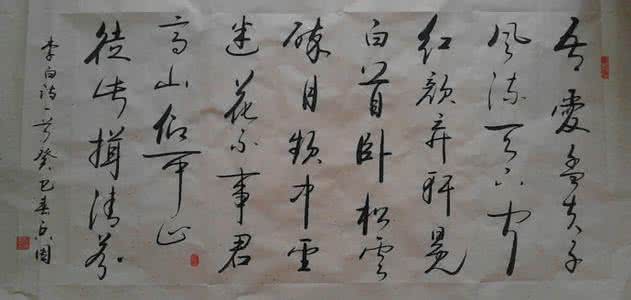 吾爱孟夫子
风流天下闻
红颜弃轩冕
白首卧松云
醉月频中圣
迷花不事君
高山仰可止
徒此揖清芬
李白诗一首癸巳春